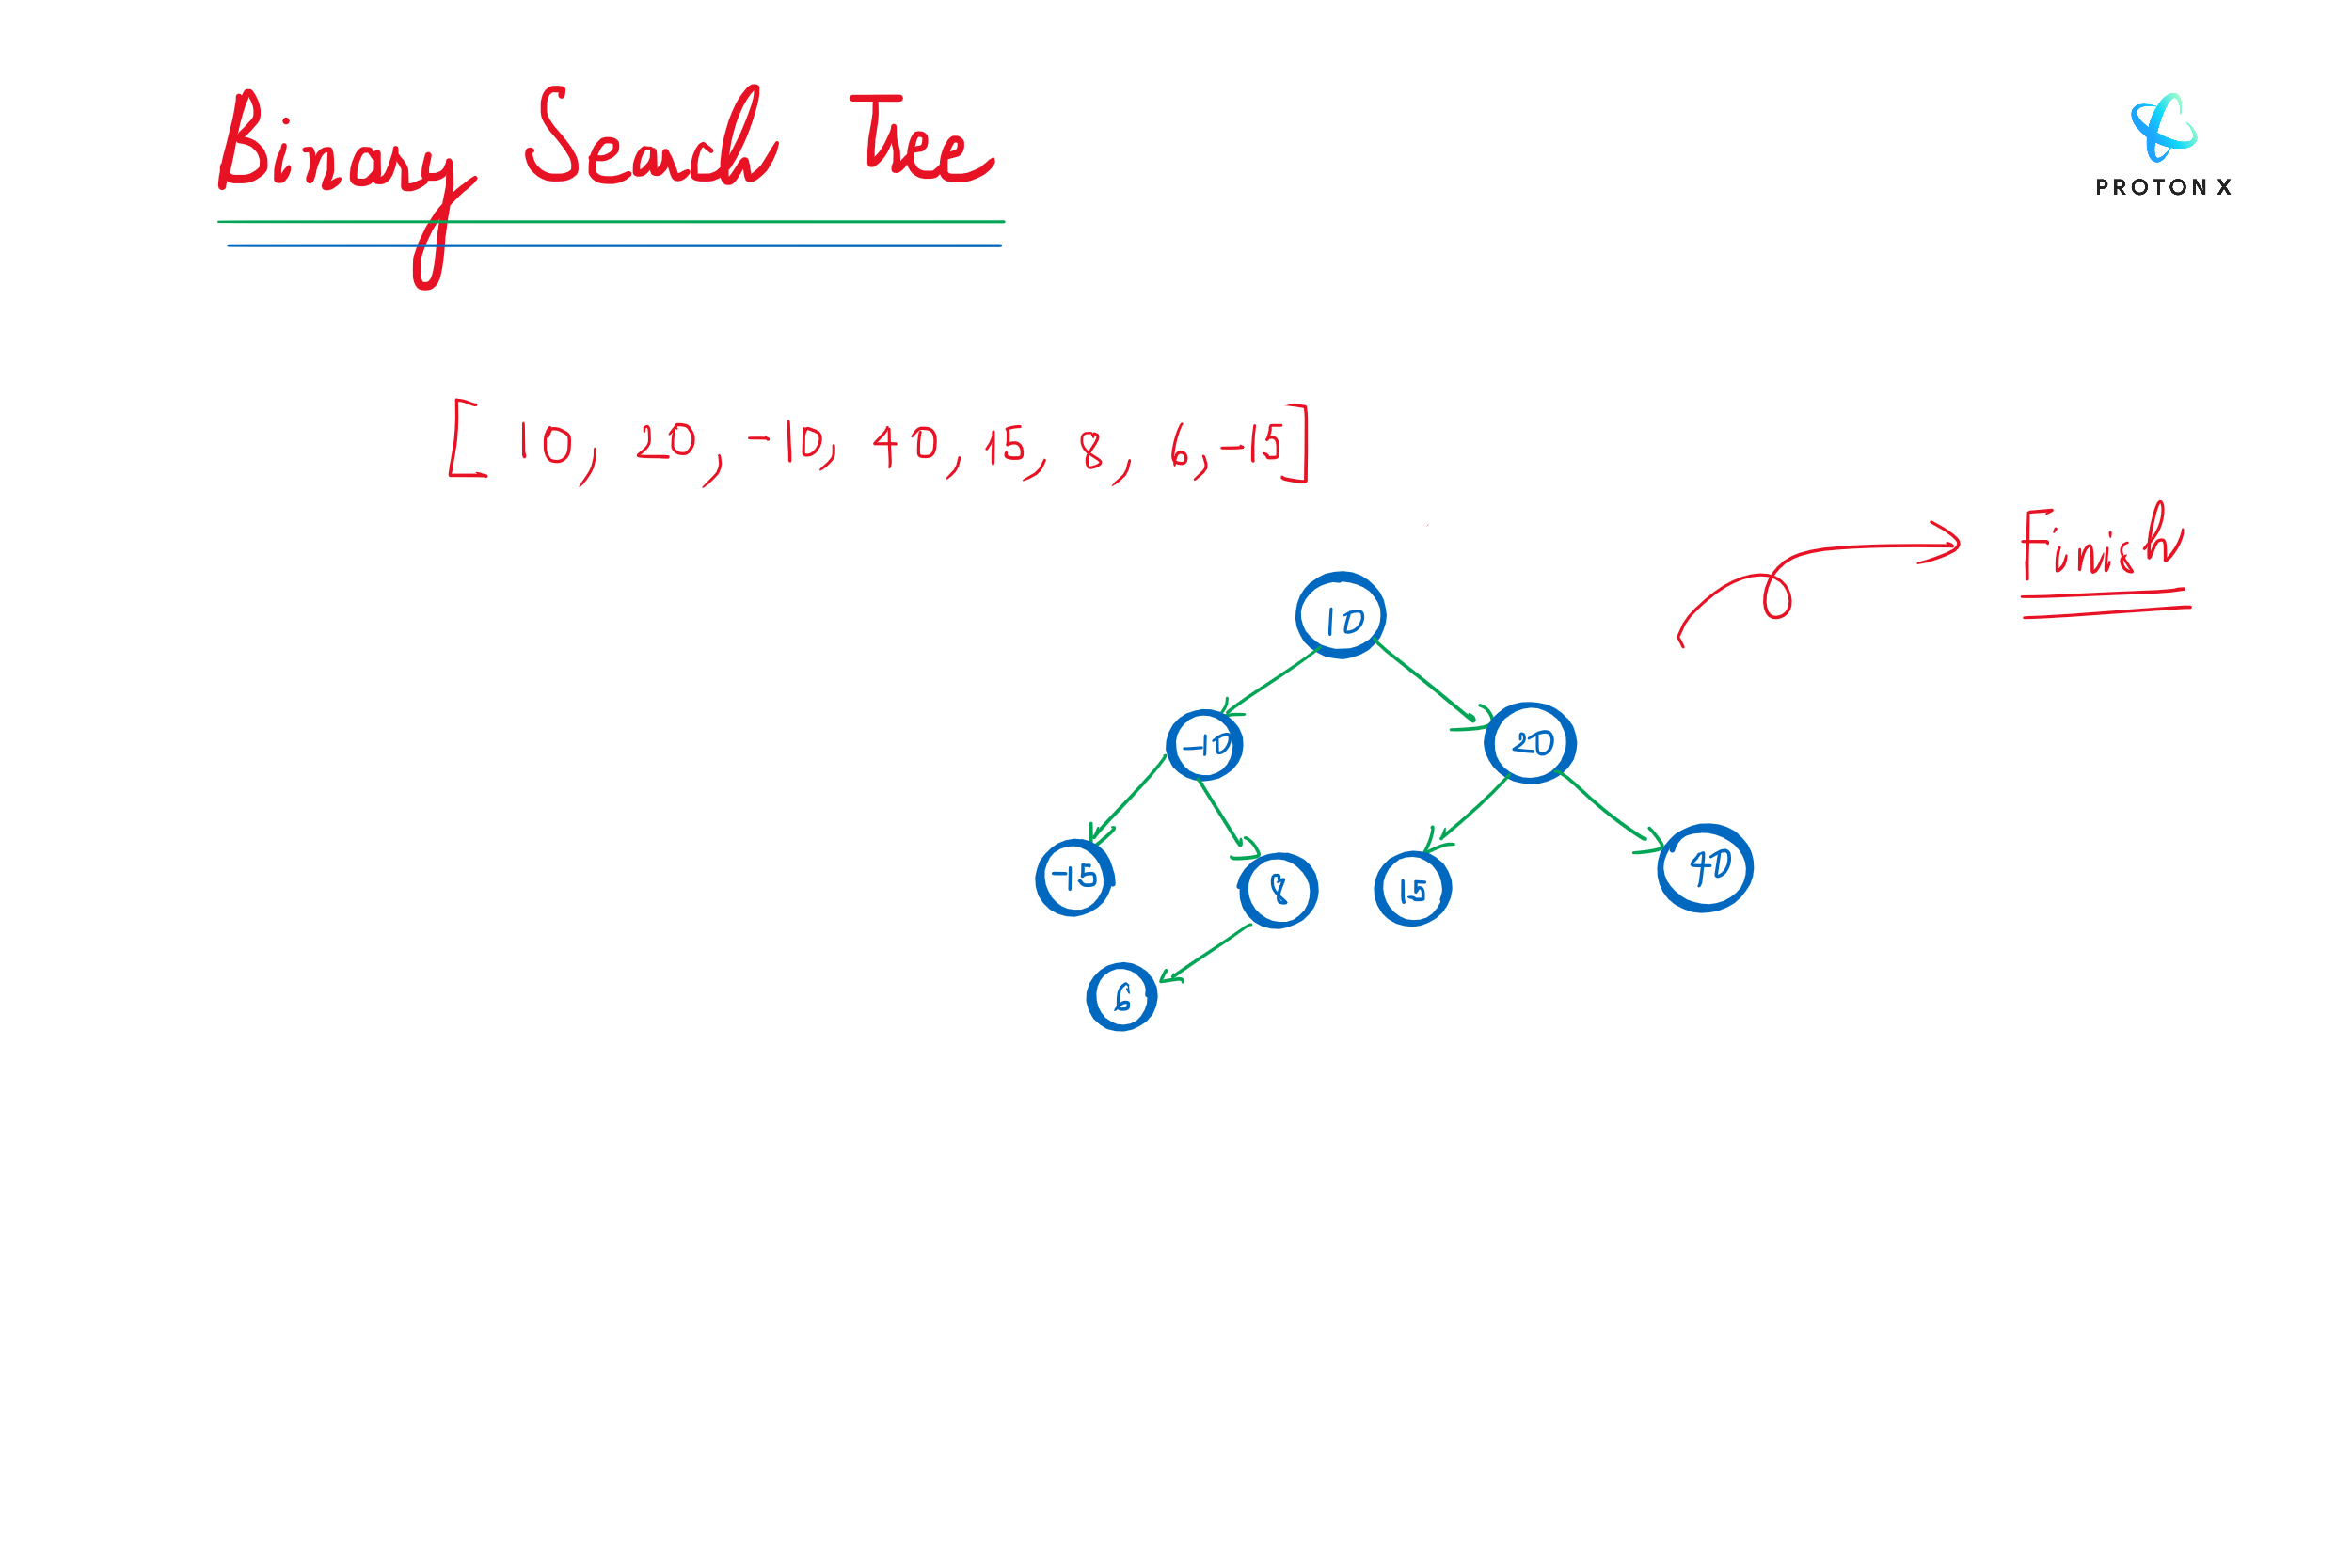 Binary Search Tree
PROTON X
[ 10, 20, -10, 40, 15, 8, 6, -15]
Finish
10
-10
20
-15
8
15
40
6